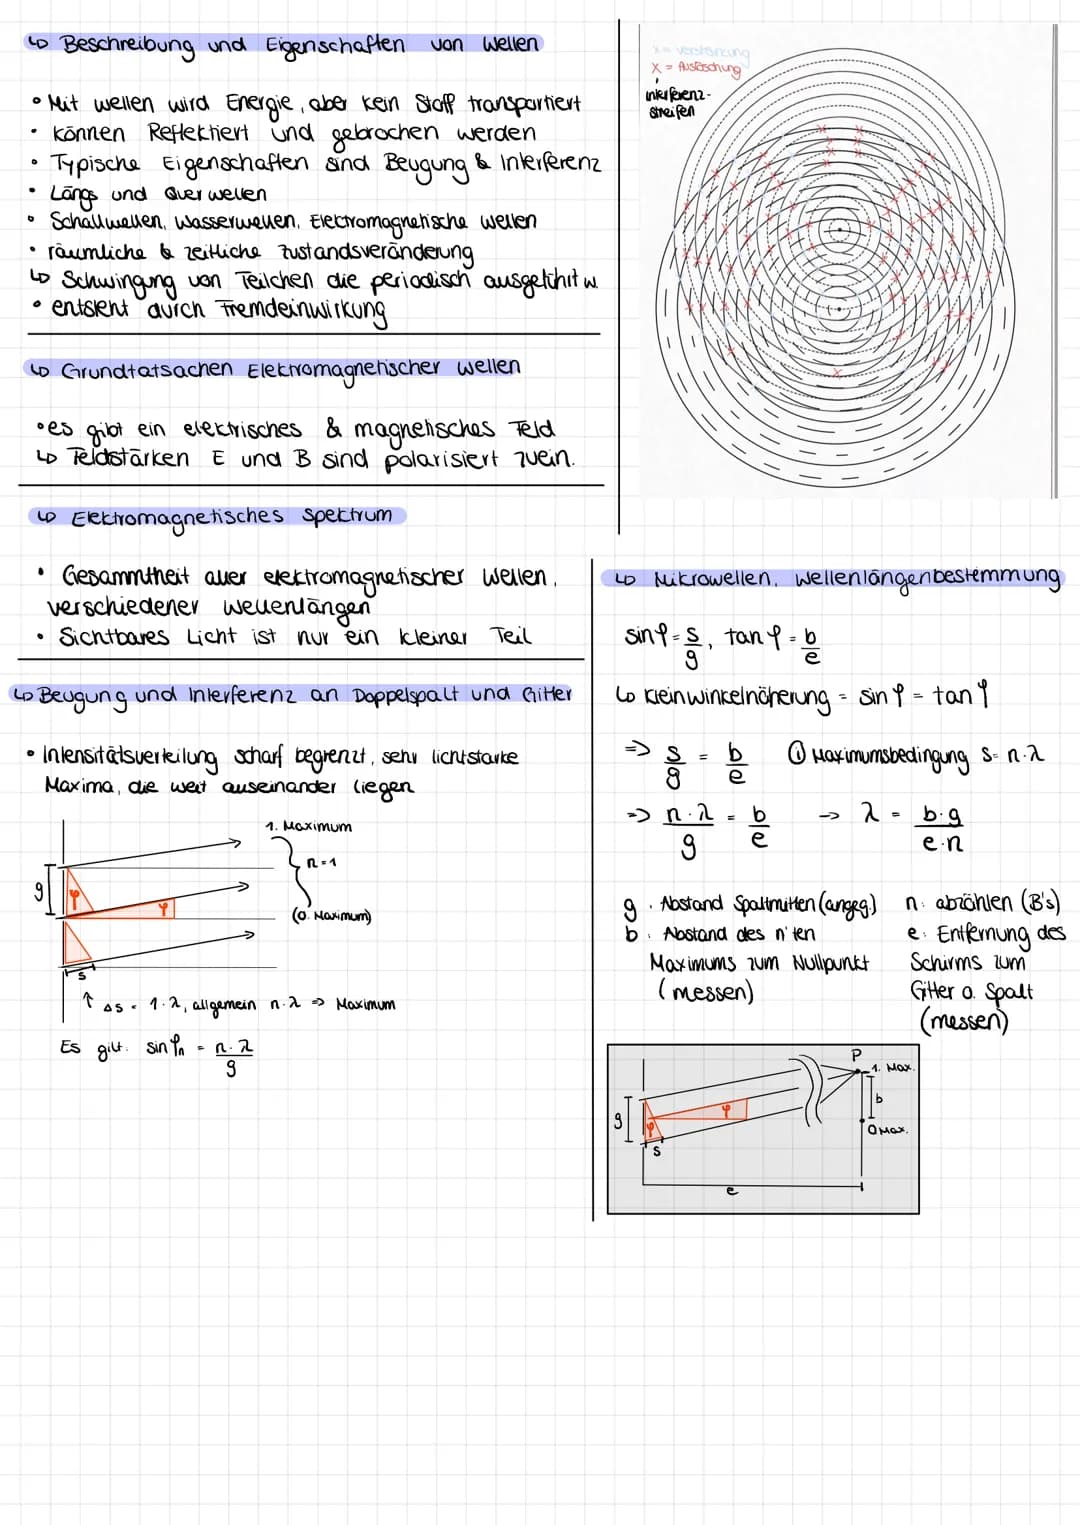 ↳ Beschreibung und Eigenschaften von Wellen
• Mit wellen wird Energie, aber kein Stoff transportiert
• können Reflektiert und gebrochen werden
• Typische Eigenschaften sind Beugung & Interferenz
• Längs und Querwellen
• Schallwellen, Wasserwellen, Elektromagnetische wellen
• räumliche & zeitliche Zustandsveränderung
↳ Schwingung von Teilchen die periodisch ausgeführt w.
• entsteht durch Fremdeinwirkung
x = Verstärkung
X = Auslöschung
Interferenz-
streifen
↳ Grundtatsachen Elektromagnetischer wellen
• es gibt ein elektrisches & magnetisches Feld
↳ Feldstärken E und B sind polarisiert zuein.
↳ Elektromagnetisches Spektrum
• Gesammtheit aller elektromagnetischer Wellen,
verschiedener Wellenlängen
• Sichtbares Licht ist nur ein kleiner Teil
↳ Beugung und Interferenz an Doppelspalt und Gitter
• Intensitätsverteilung scharf begrenzt, sehr lichtstarke
Maxima, die weit auseinander liegen
1. Maximum
n=1
(0. Maximum)
g
φ
φ
s
↑ Δs = 1·λ, allgemein n·λ ⇒ Maximum
Es gilt: sin φn = n·λ/g
↳ Mikrowellen, Wellenlängenbestimmung
sin φ = s/g, tan φ = b/e
↳ Kleinwinkelnäherung = sin φ = tan φ
=> s/g = b/e ① Maximumsbedingung s = n·λ
=> n·λ/g = b/e -> λ = b·g/e·n
g: Abstand Spaltmitten (angeg.)
b: Abstand des n'ten
Maximums zum Nullpunkt
(messen)
n: abzählen (B's)
e: Entfernung des
Schirms zum
Gitter o. Spalt
(messen)
P
1. Max.
b
0 Max.
g
φ
φ
s
e